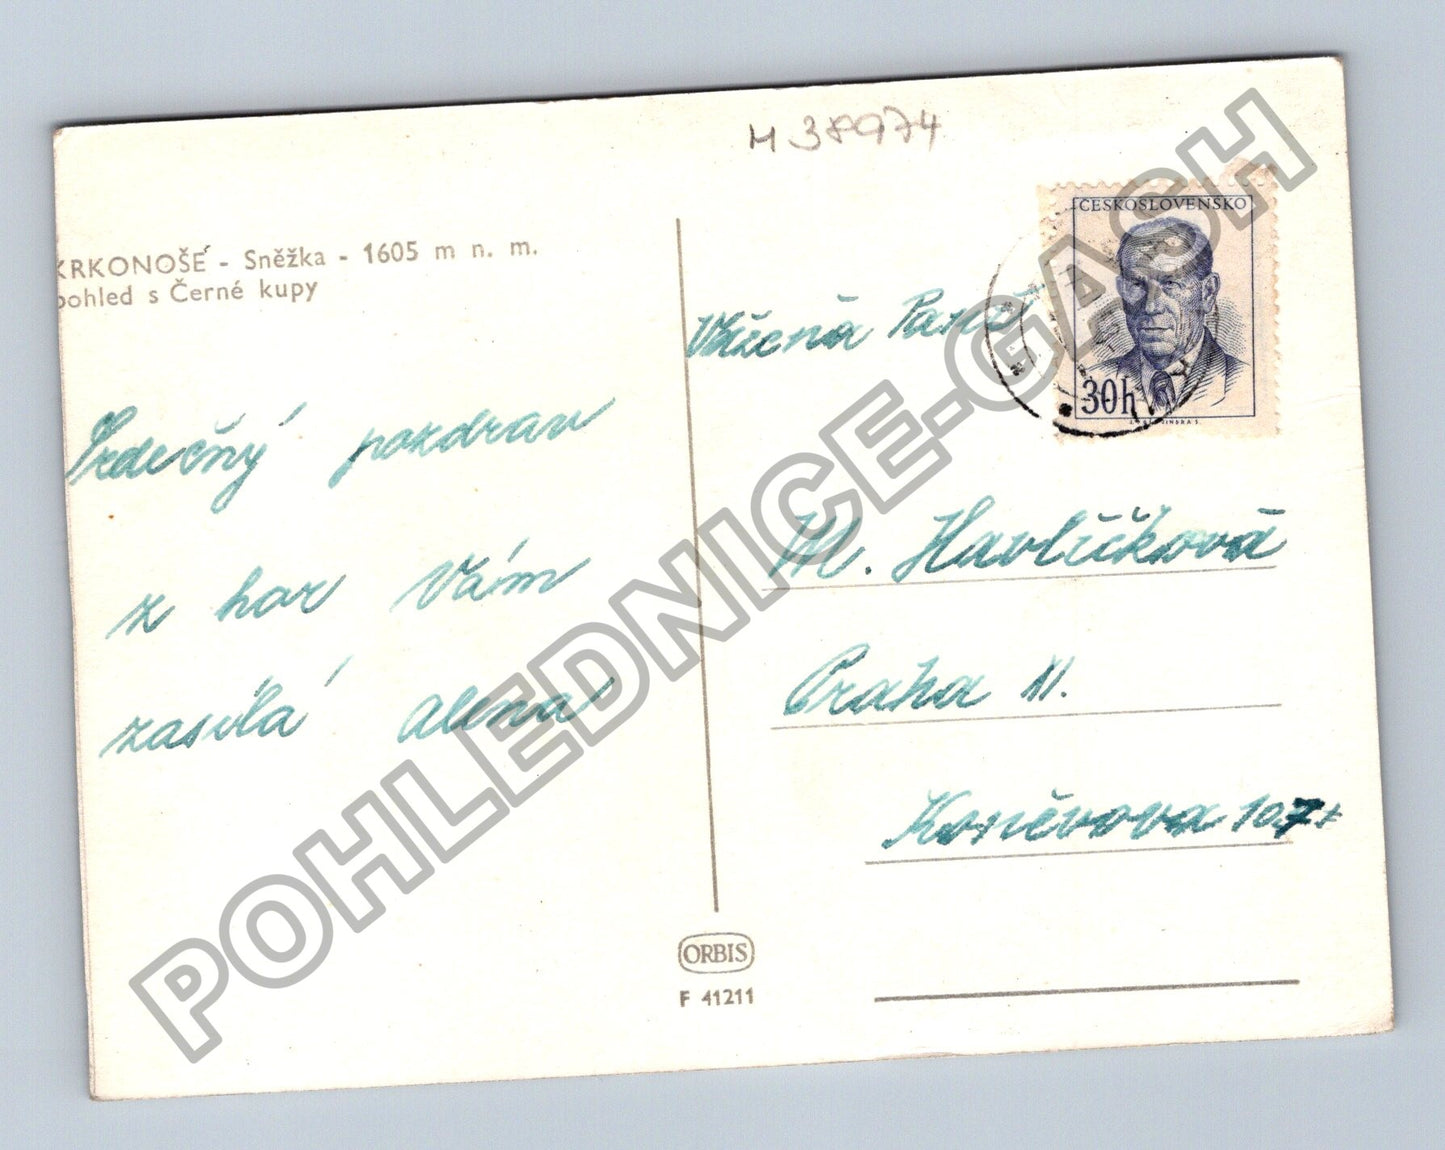 M 38974
KRKONOŠE - Sněžka - 1605 m n. m.
pohled s Černé kupy
Srdečný pozdrav
z hor Vám
zasílá Alena
ČESKOSLOVENSKO
30h
Vážená Paní
M. Havlíčková
Praha 11.
Koněvova 107
ORBIS
F 41211
POHLEDNICE-GASH